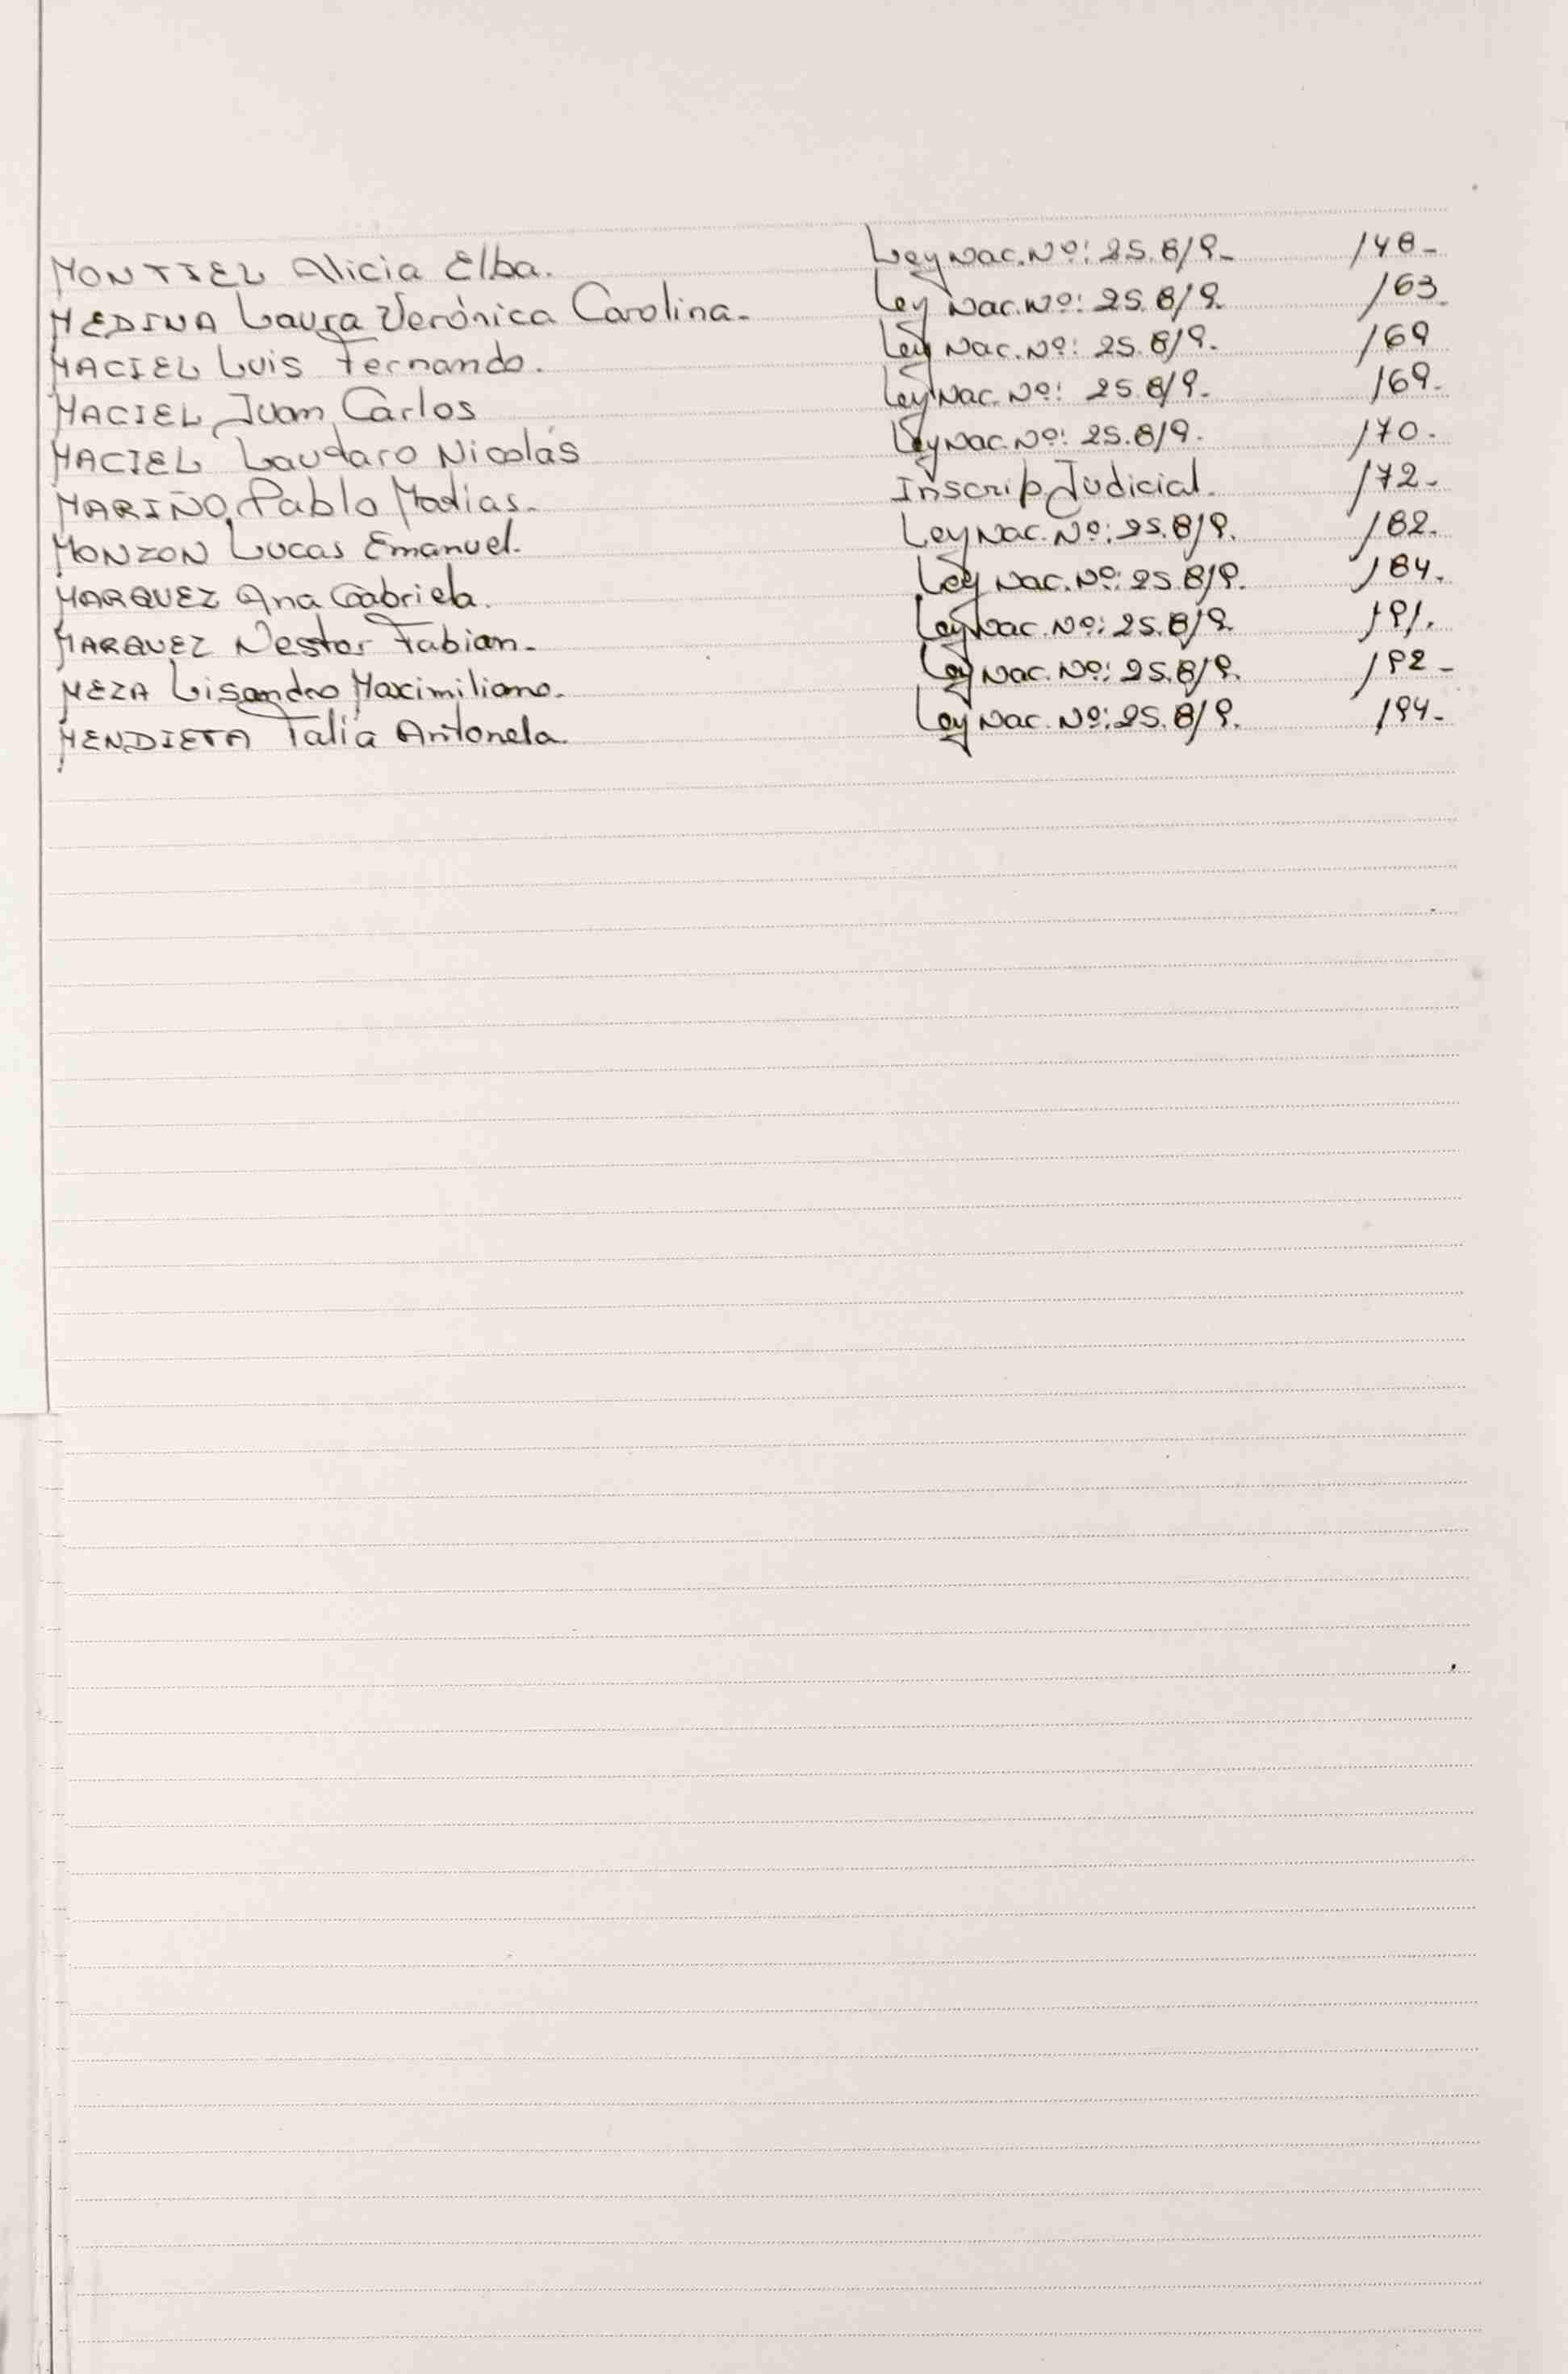 MONTIEL Alicia Elba. Ley Nac. Nº: 25.819.- 148-
MEDINA Laura Verónica Carolina.- Ley Nac. Nº: 25.819. 163.
MACIEL Luis Fernando. Ley Nac. Nº: 25.819. 169
MACIEL Juan Carlos Ley Nac. Nº: 25.819. 169.
MACIEL Lautaro Nicolás Ley Nac. Nº: 25.819. 170.
MARIÑO, Pablo Matias.- Inscrip. Judicial. 172-
MONZON Lucas Emanuel. Ley Nac. Nº: 25.819. 182.
MARQUEZ Ana Gabriela. Ley Nac. Nº: 25.819. 184.
MARQUEZ Nestor Fabian.- Ley Nac. Nº: 25.819. 191.
MEZA Lisandro Maximiliano. Ley Nac. Nº: 25.819. 192-
MENDIETA Talía Antonela. Ley Nac. Nº: 25.819. 194-